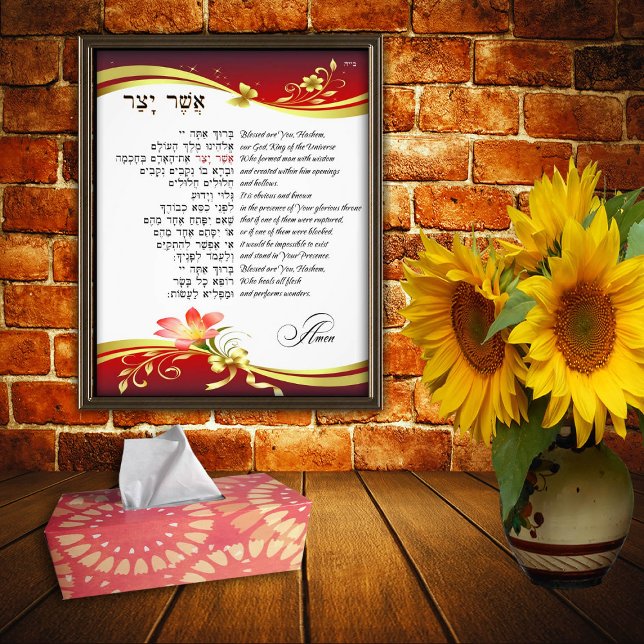 בייה
אֲשֶׁר יָצַר
בָּרוּךְ אַתָּה יי
אֱלֹהֵינוּ מֶלֶךְ הָעוֹלָם
אֲשֶׁר יָצַר אֶת־הָאָדָם בְּחָכְמָה
וּבָרָא בוֹ נְקָבִים נְקָבִים
חֲלוּלִים חֲלוּלִים
גָּלוּי וְיָדוּעַ
לִפְנֵי כִסֵּא כְבוֹדֶךָ
שֶׁאִם יִפָּתֵחַ אֶחָד מֵהֶם
אוֹ יִסָּתֵם אֶחָד מֵהֶם
אִי אֶפְשַׁר לְהִתְקַיֵּם
וְלַעֲמֹד לְפָנֶיךָ:
בָּרוּךְ אַתָּה יי
רוֹפֵא כָל בָּשָׂר
וּמַפְלִיא לַעֲשׂוֹת:
Blessed are You, Hashem,
our God, King of the Universe
Who formed man with wisdom
and created within him openings
and hollows.
It is obvious and known
in the presence of Your glorious throne
that if one of them were ruptured,
or if one of them were blocked,
it would be impossible to exist
and stand in Your Presence.
Blessed are You, Hashem,
Who heals all flesh
and performs wonders.
Amen